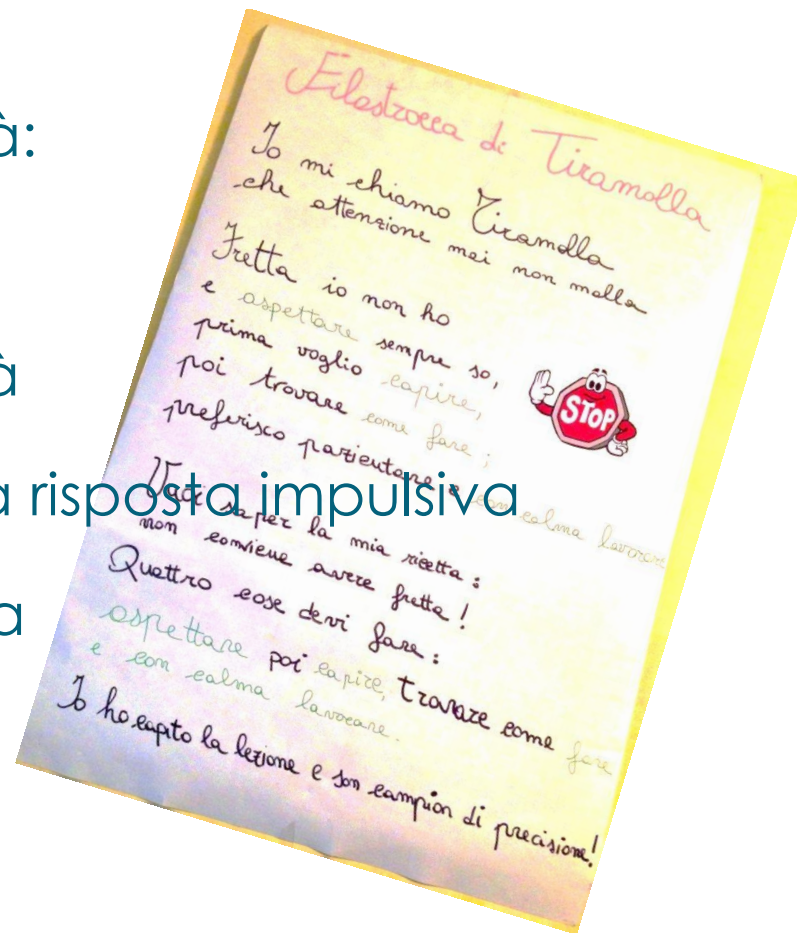 à:
à
a risposta impulsiva
a
Filastrocca di Tiramolla
Io mi chiamo Tiramolla
che attenzione mai non molla
Fretta io non ho
e aspettare sempre so,
prima voglio capire,
poi trovare come fare;
preferisco pazientare e con calma lavorare
STOP
Vuoi saper la mia ricetta:
non conviene avere fretta!
Quattro cose devi fare:
aspettare poi capire, trovare come fare
e con calma lavorare.
Io ho capito la lezione e son campion di precisione!